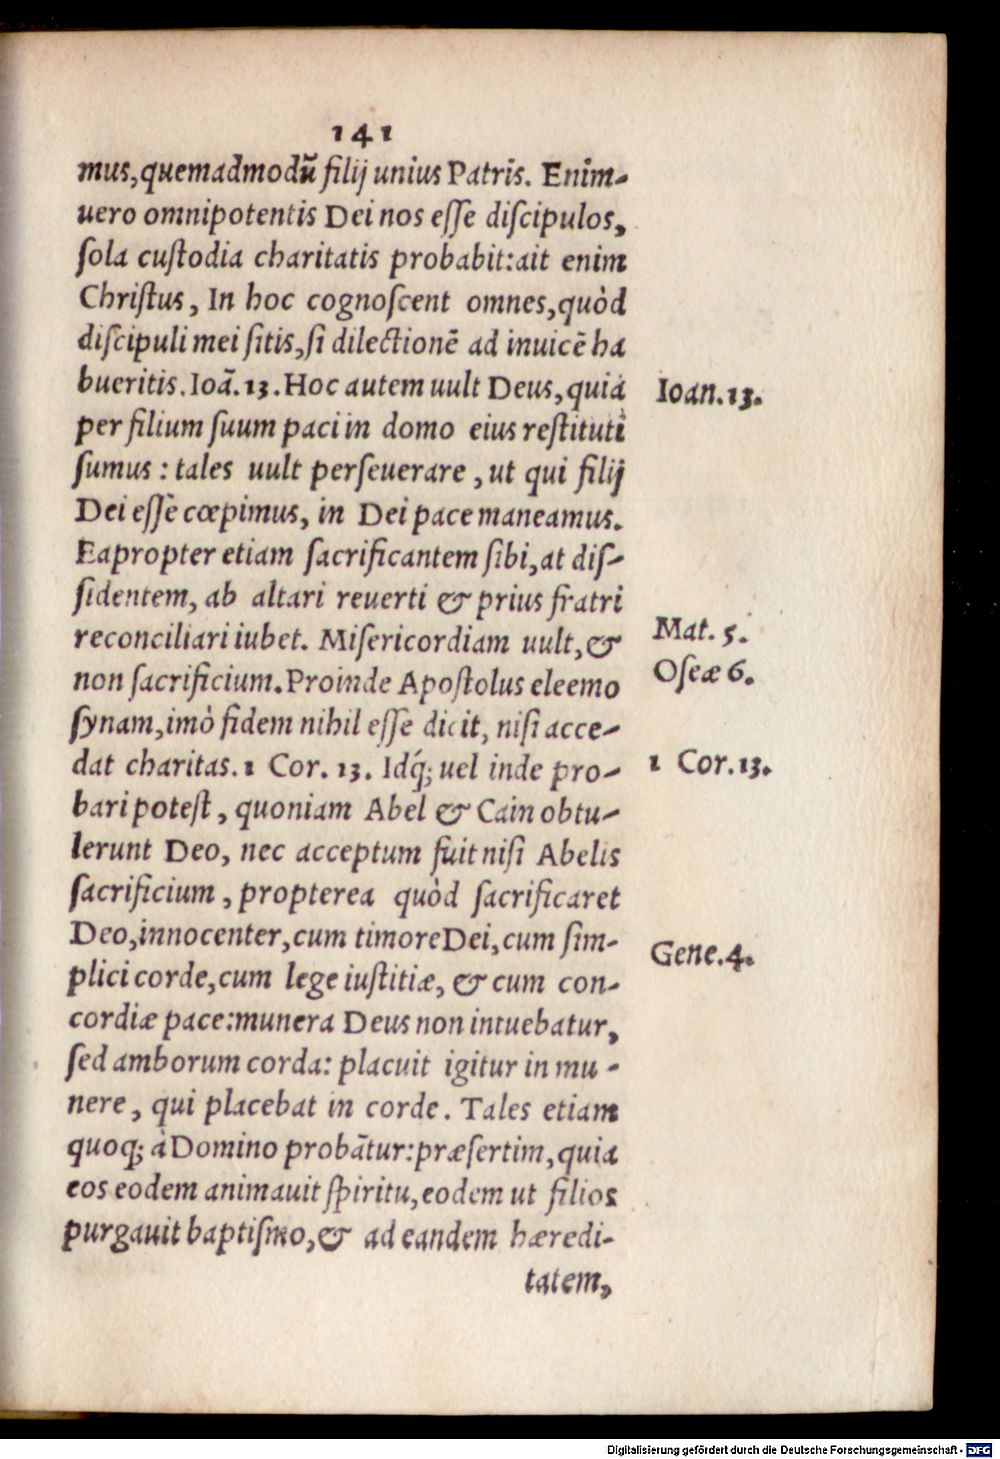 141
mus,quemadmodū filij unius Patris. Enim-
uero omnipotentis Dei nos eſſe diſcipulos,
ſola cuſtodia charitatis probabit:ait enim
Chriſtus, In hoc cognoſcent omnes,quòd
diſcipuli mei ſitis,ſi dilectionē ad inuicē ha
bueritis.Ioā.13.Hoc autem uult Deus,quia
Ioan.13.
per filium ſuum paci in domo eius reſtituti
ſumus: tales uult perſeuerare, ut qui filij
Dei eſſe cœpimus, in Dei pace maneamus.
Eapropter etiam ſacrificantem ſibi,at diſ-
ſidentem, ab altari reuerti & prius fratri
reconciliari iubet. Miſericordiam uult,&
Mat. 5.
non ſacrificium.Proinde Apoſtolus eleemo
Oſeæ 6.
ſynam,imò fidem nihil eſſe dicit, niſi acce-
dat charitas.1 Cor. 13. Idq́; uel inde pro-
1 Cor.13.
bari poteſt, quoniam Abel & Cain obtu-
lerunt Deo, nec acceptum fuit niſi Abelis
ſacrificium, propterea quòd ſacrificaret
Deo,innocenter,cum timore Dei,cum ſim-
Gene.4.
plici corde,cum lege iuſtitiæ, & cum con-
cordiæ pace:munera Deus non intuebatur,
ſed amborum corda: placuit igitur in mu-
nere, qui placebat in corde. Tales etiam
quoq; à Domino probātur:præſertim,quia
eos eodem animauit ſpiritu,eodem ut filios
purgauit baptiſmo,& ad eandem hæredi-
tatem,
Digitalisierung gefördert durch die Deutsche Forschungsgemeinschaft - DFG